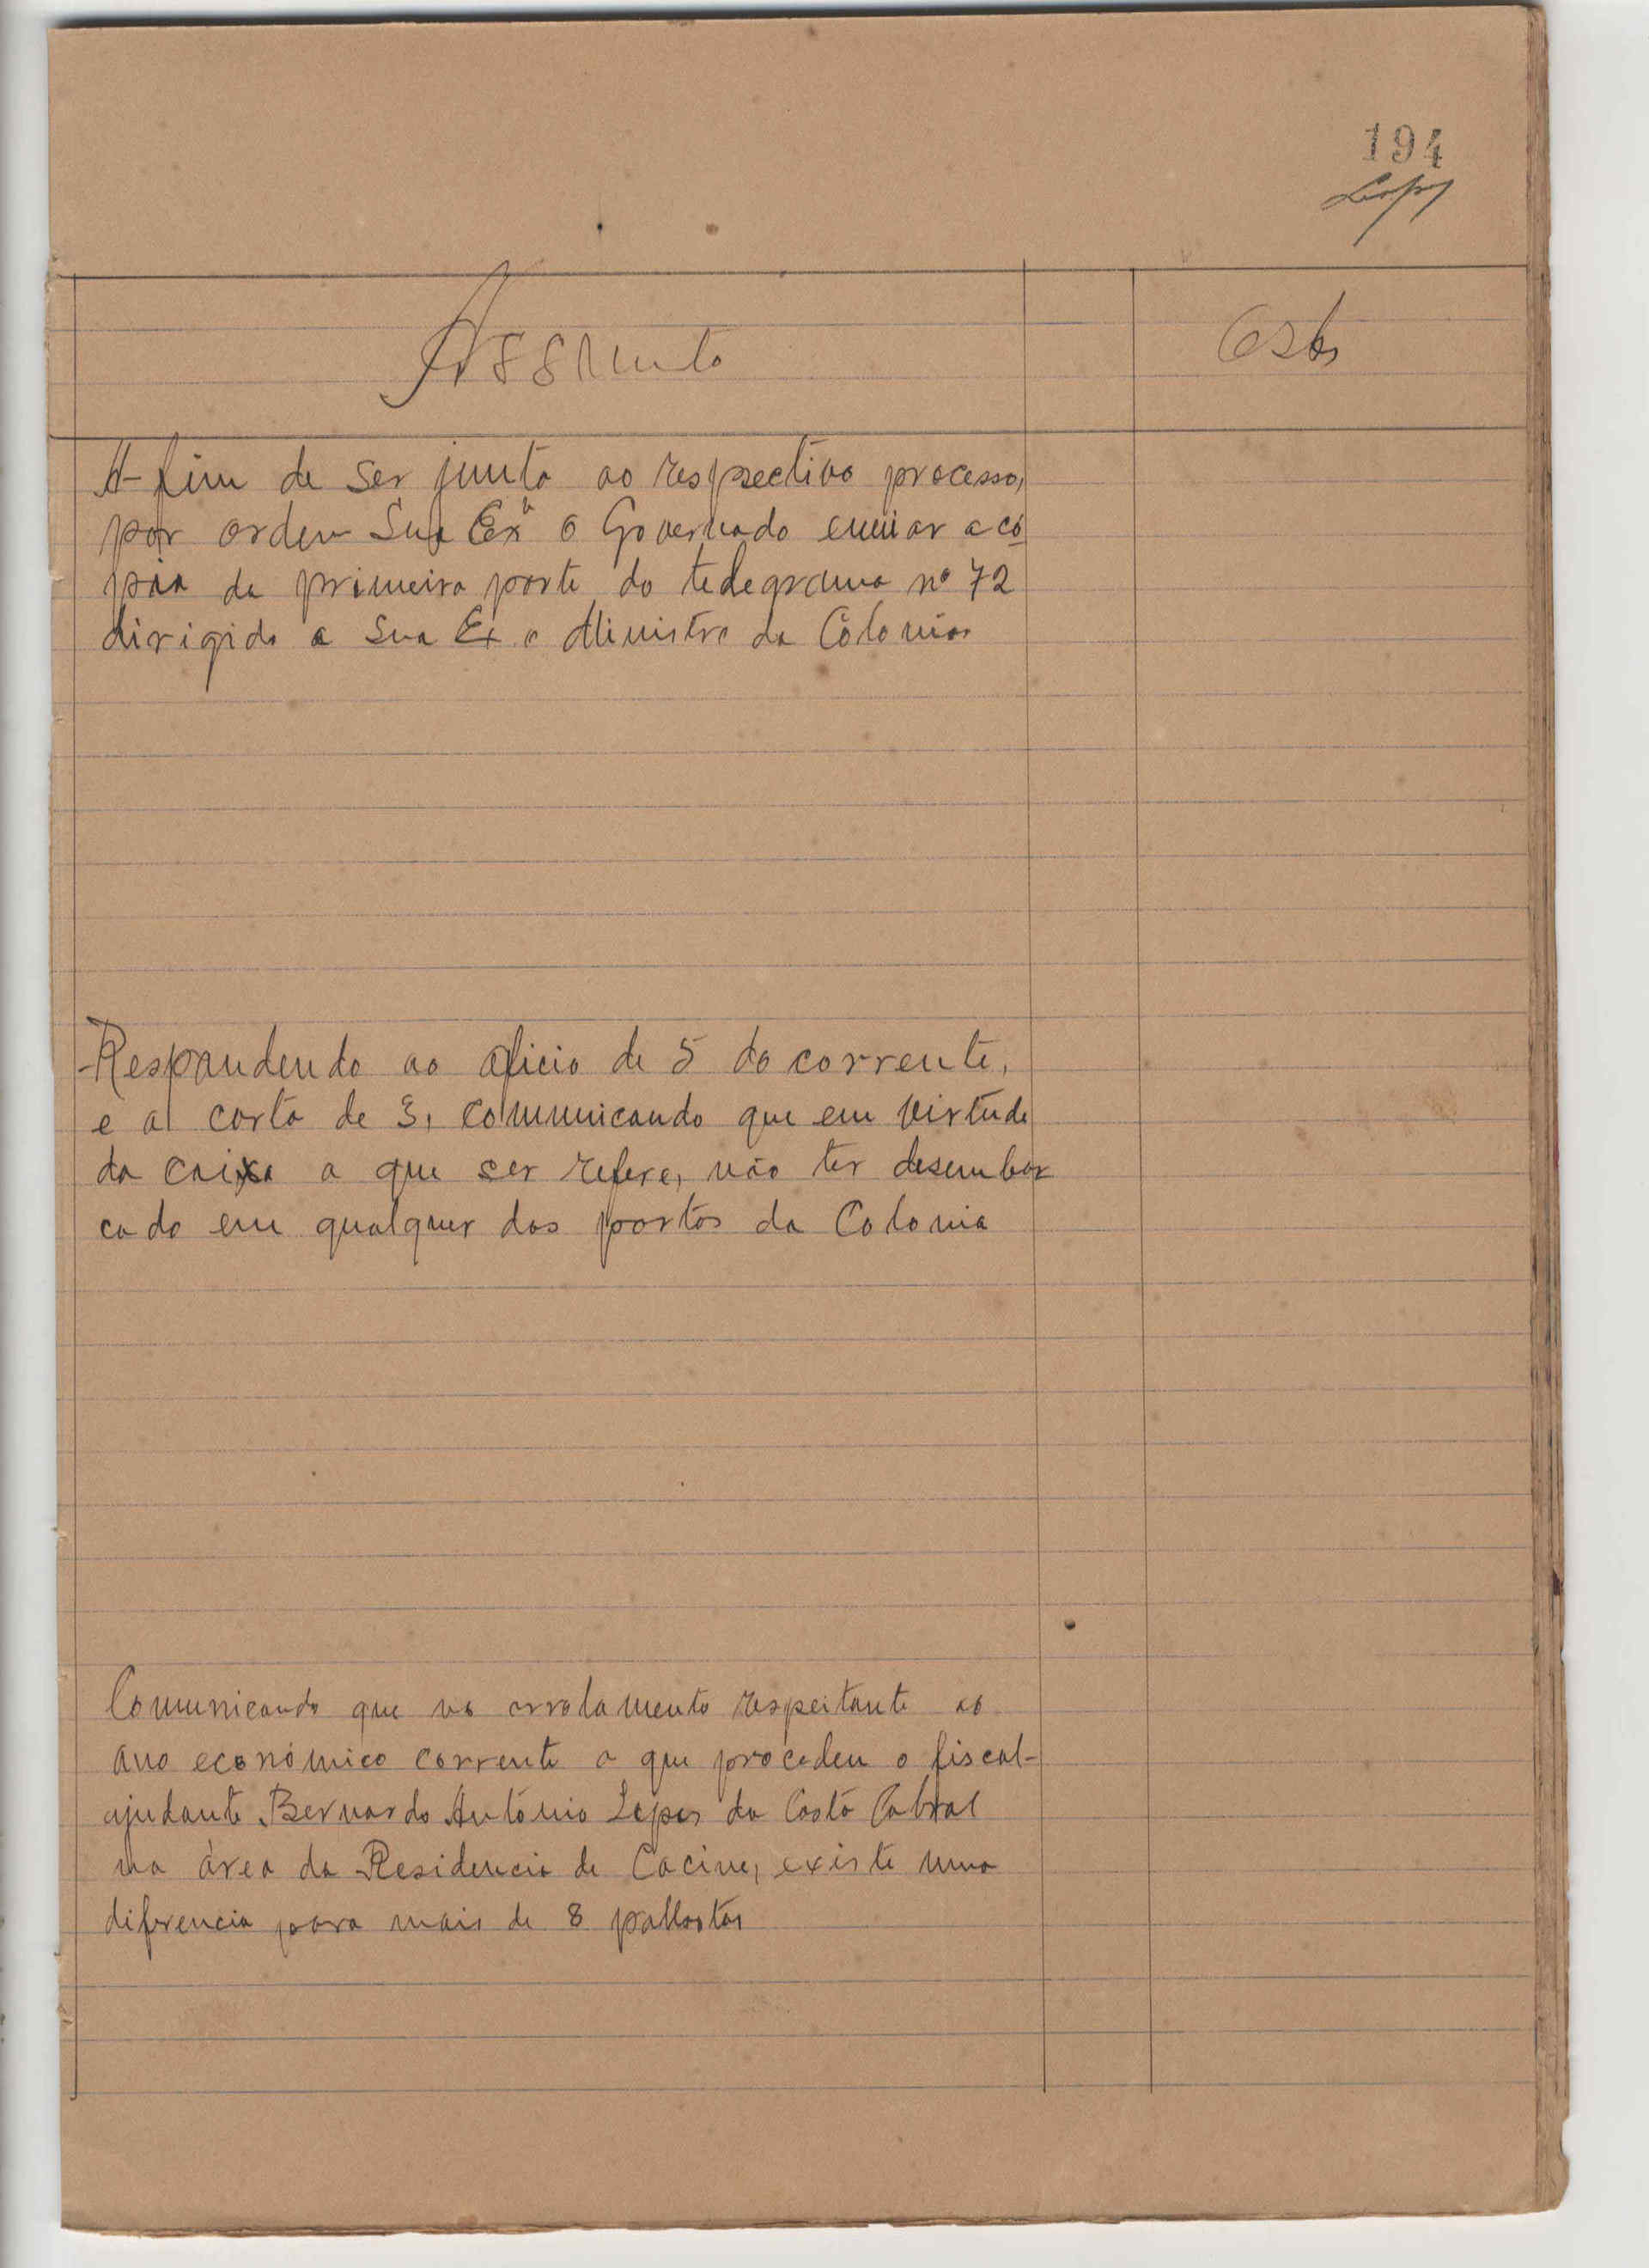 194
Lopes
Assunto
Obs
A-fim de ser junto ao respectivo processo,
por ordem Sua Exª o Governado enviar a có
pia da primeira parte do telegrama nº 72
dirigido a Sua Ex o Ministro da Colonias
Respondendo ao oficio de 5 do corrente,
e a carta de 3, comunicando que em virtude
da caixa a que ser refere, não ter desembar
cado em qualquer dos portos da Colonia
Comunicando que no arrolamento respeitante ao
ano económico corrente a que procedeu o fiscal-
ajudante Bernardo António Lopes da Costa Cabral
na área da Residencia de Cacine, existe uma
diferencia para mais de 8 palhotas